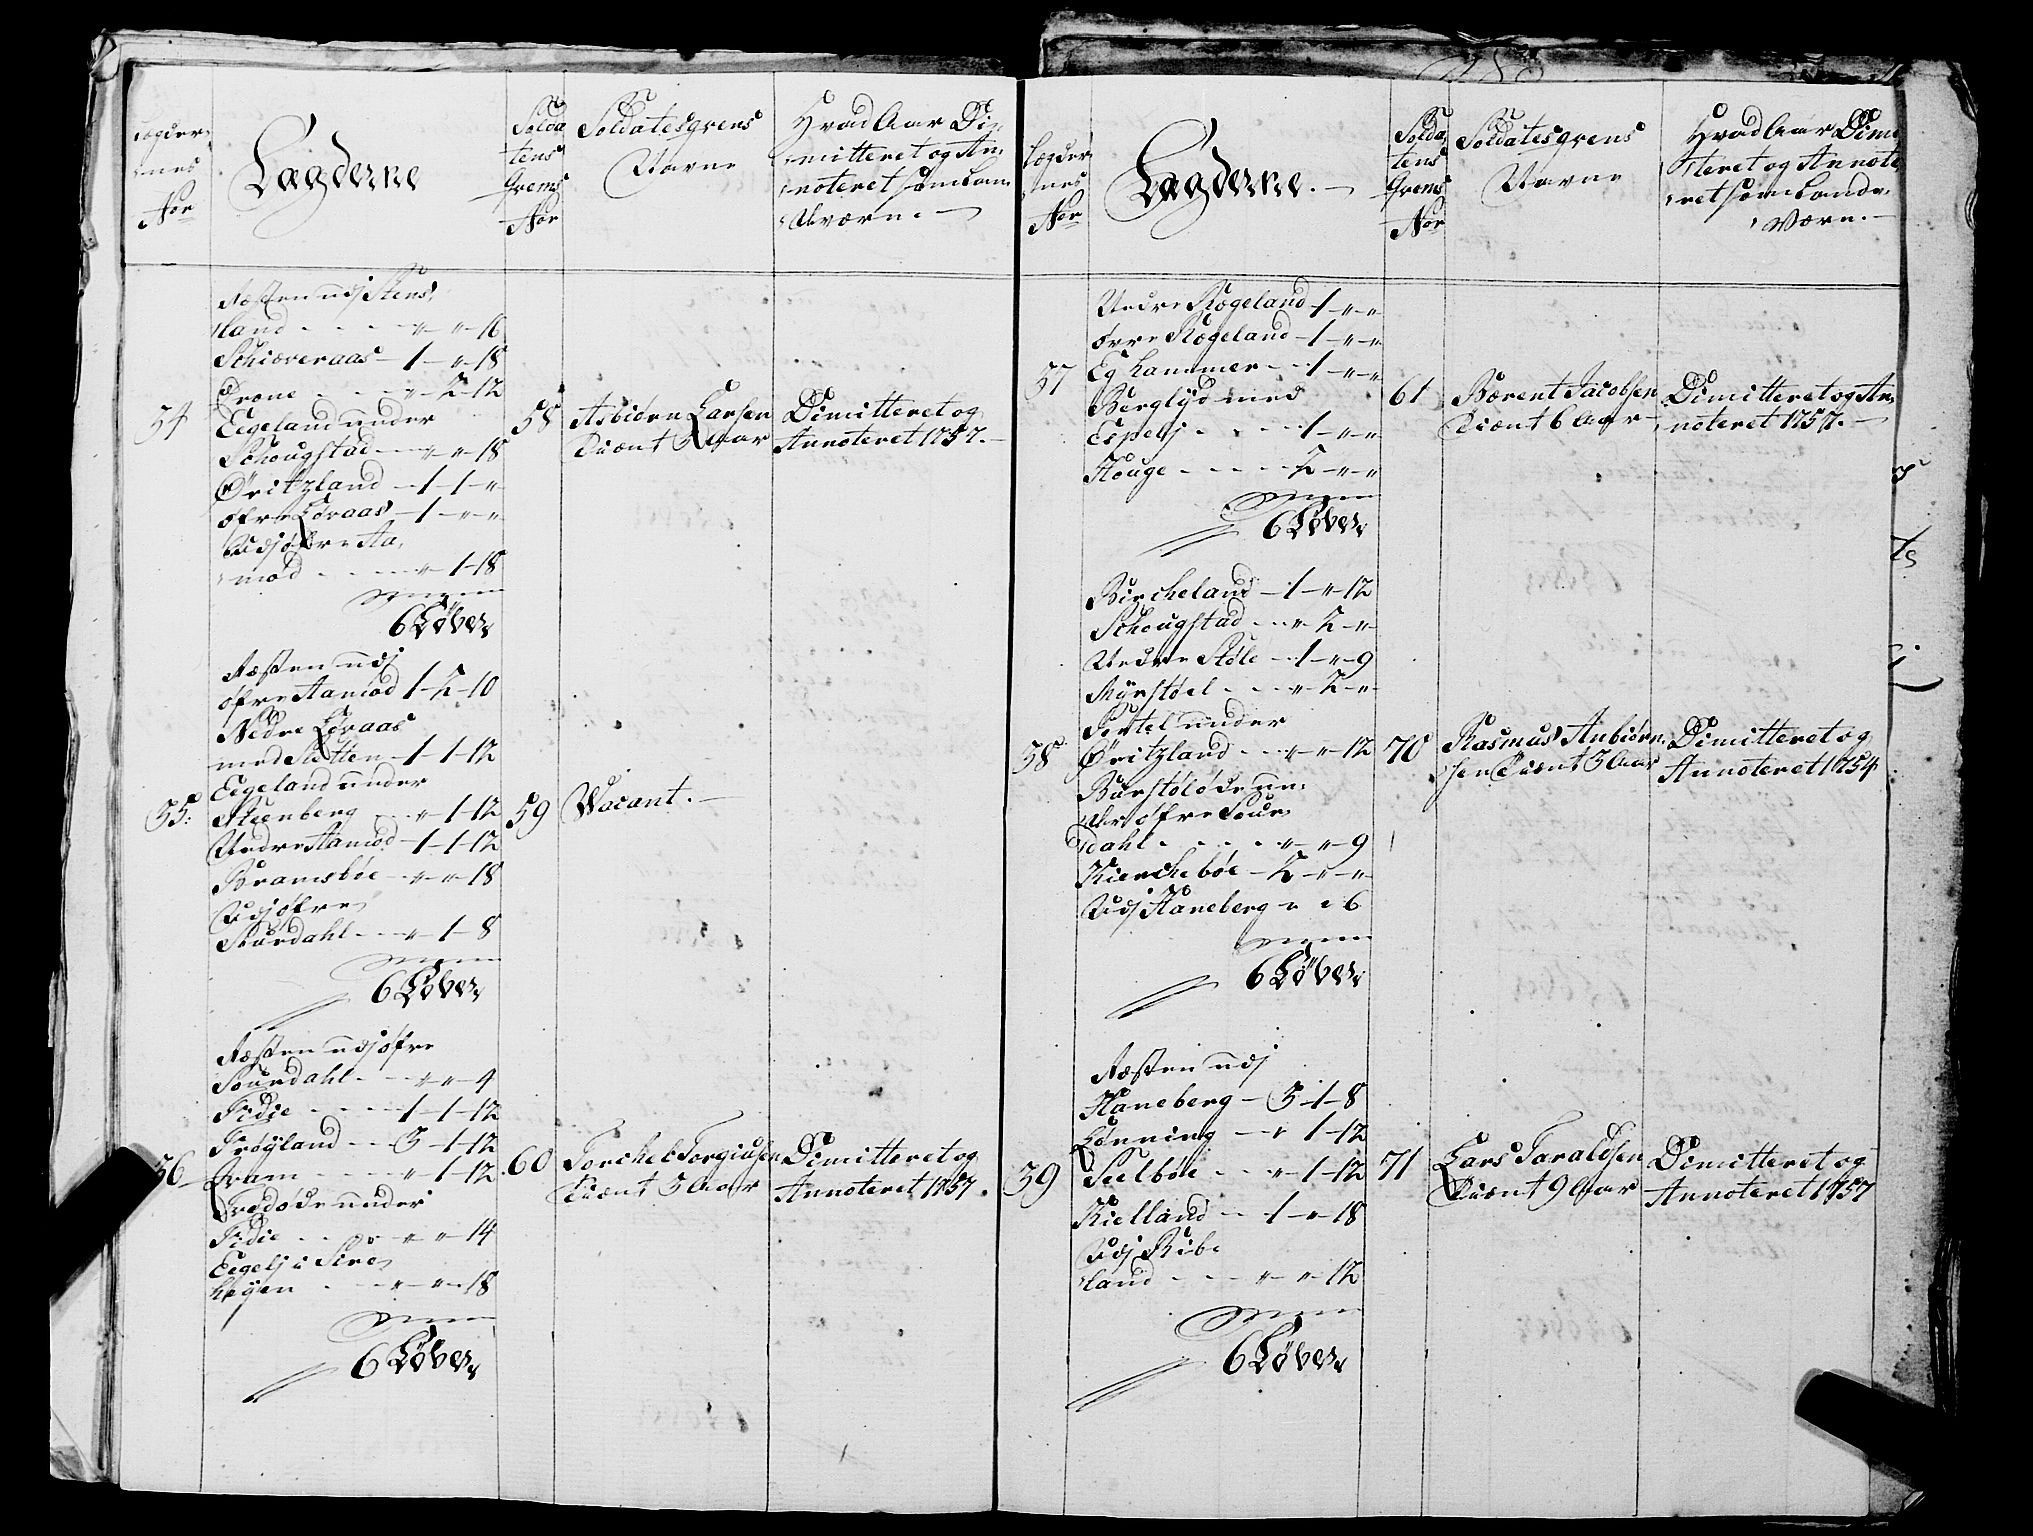 Lægder-
nes
No
Lægderne
Solda
tens
Grens
No
Soldatesgrens
Navne
Hvad Aar Di-
mitteret og An-
noteret som Lan-
dværn.
Resten udj Stens-
land - - - " " 16
Schiæveraas - 1 " 18
Drone - - " 2 - 12
Eegeland under
Schougstad - " " 18
Øritzland - 1 - 1 - "
øfre Løvaas - 1 - " - "
Udj øfre Aa-
mod - - - " 1 - 18
6 Løber
34
58
Asbiørn Larsen
Tiænt 5 Aar
Dimitteret og
Annoteret 1757.
Resten udj
øfre Aamod 1 - 2 - 10
Nedre Løvaas
med Sletten - 1 - 1 - 12
Eegeland under
Steenberg - " 1 - 12
Nedre Aamod - 1 - 1 - 12
Bramsbøe - " " 18
Udj øfre
Suurdahl - " 1 - 8
6 Løber
35
59
Vacant.
Resten udj øfre
Suurdahl - " " 4
Fidie - - 1 - 1 - 12
Frøyland - 3 - 1 - 12
Fram - - " 1 - 12
Trødøde under
Fidie - - " " 14
Eegelj i Sire
høyen - - " " 18
6 Løber
36
60
Torchel Torgiusen
Tiænt 5 Aar
Dimitteret og
Annoteret 1757.
Lægder-
nes
No
Lægderne.
Solda-
tens
Grens
No
Soldatesgrens
Navne
Hvad Aar Dimi
teret og Annote-
ret som Lande-
Værn.
Nedre Røgeland 1 - " - "
øvre Røgeland - 1 - " - "
Eg hammer - 1 - " - "
Berglyd med
Espelj - - 1 - " - "
Houge - - 2 - " - "
6 Løber
37
61
Bærent Jacobsen
Tiænt 6 Aar
Dimitteret og An-
noteret 1757.
Bircheland - 1 - " 12
Schougstad - " 2 - "
Nedre Støle - 1 - " 9
Myrstøel - - " 2 - "
Tertel under
Øritzland - " " 12
Burstøløde un-
der øfre Suur
dahl - - " " 9
Kierchebøe - 2 - " - "
Udj Haneberg " " 6
6 Løber
38
70
Rasmus Anbiørn-
sen Tiænt 5 Aar
Dimitteret og
Annoteret 1754
Resten udj
Haneberg - 3 - 1 - 8
Lønning - " 1 - 12
Seelbøe - - " 1 - 12
Kielland - 1 - " 18
Udj Ribe
land - - " " 12
6 Løber
39
71
Lars Taraldsen
Tiænt 9 Aar
Dimitteret og
Annoteret 1757